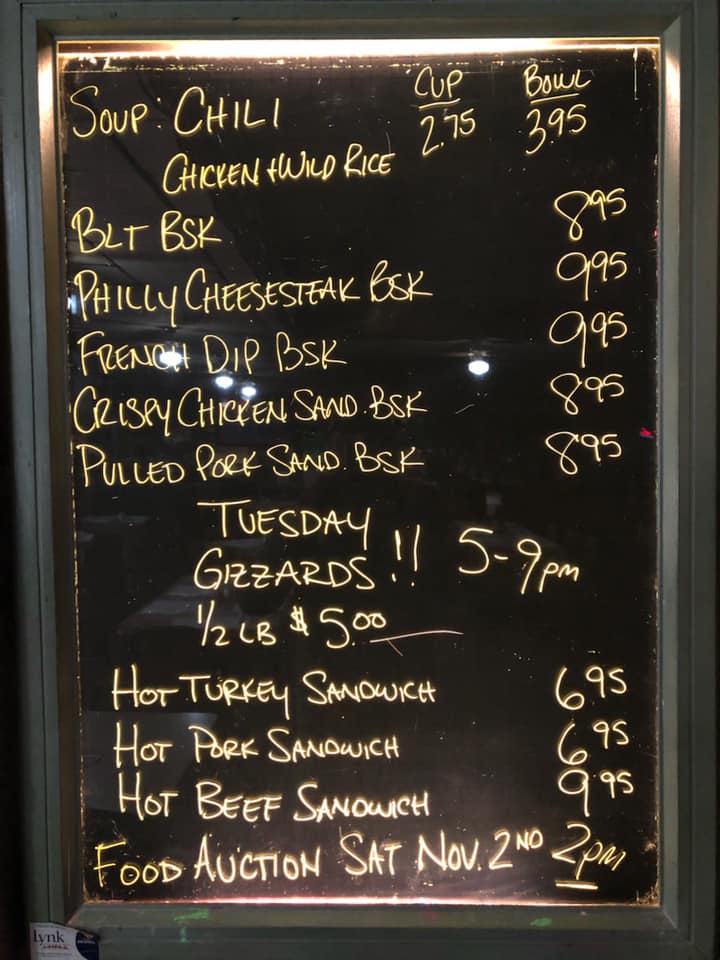 CUP BOWL
SOUP: CHILI 2.75 3.95
CHICKEN + WILD RICE
BLT BSK 8.95
PHILLY CHEESESTEAK BSK 9.95
FRENCH DIP BSK 9.95
CRISPY CHICKEN SAND. BSK 8.95
PULLED PORK SAND. BSK 8.95
TUESDAY
GIZZARDS !! 5-9PM
1/2 LB $5.00
HOT TURKEY SANDWICH 6.95
HOT PORK SANDWICH 6.95
HOT BEEF SANDWICH 9.95
FOOD AUCTION SAT NOV. 2ND 2PM
Lynk